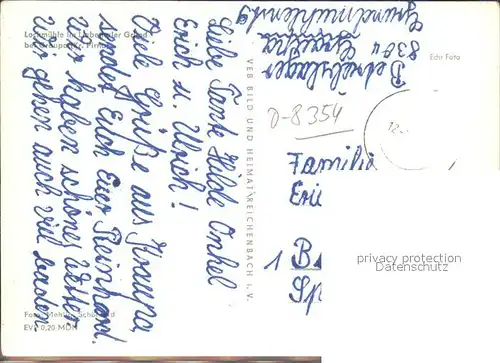 Lochmühle im Liebethaler Grund
bei Graupa Kr. Pirna
Liebe Tante Hilde Onkel
Erich u. Ulrich!
Viele Grüße aus Graupa
sendet Euch Euer Reinhard.
Wir haben schönes Wetter.
Wir gehen auch viel baden.
EVP 0,20 MDN
VEB BILD UND HEIMAT REICHENBACH i. V.
Betriebslager
8304 Graupa
Grundmühlenstr
Echt Foto
D-8354
12.
Familie
Eri
1 B
Sp
privacy protection
Datenschutz